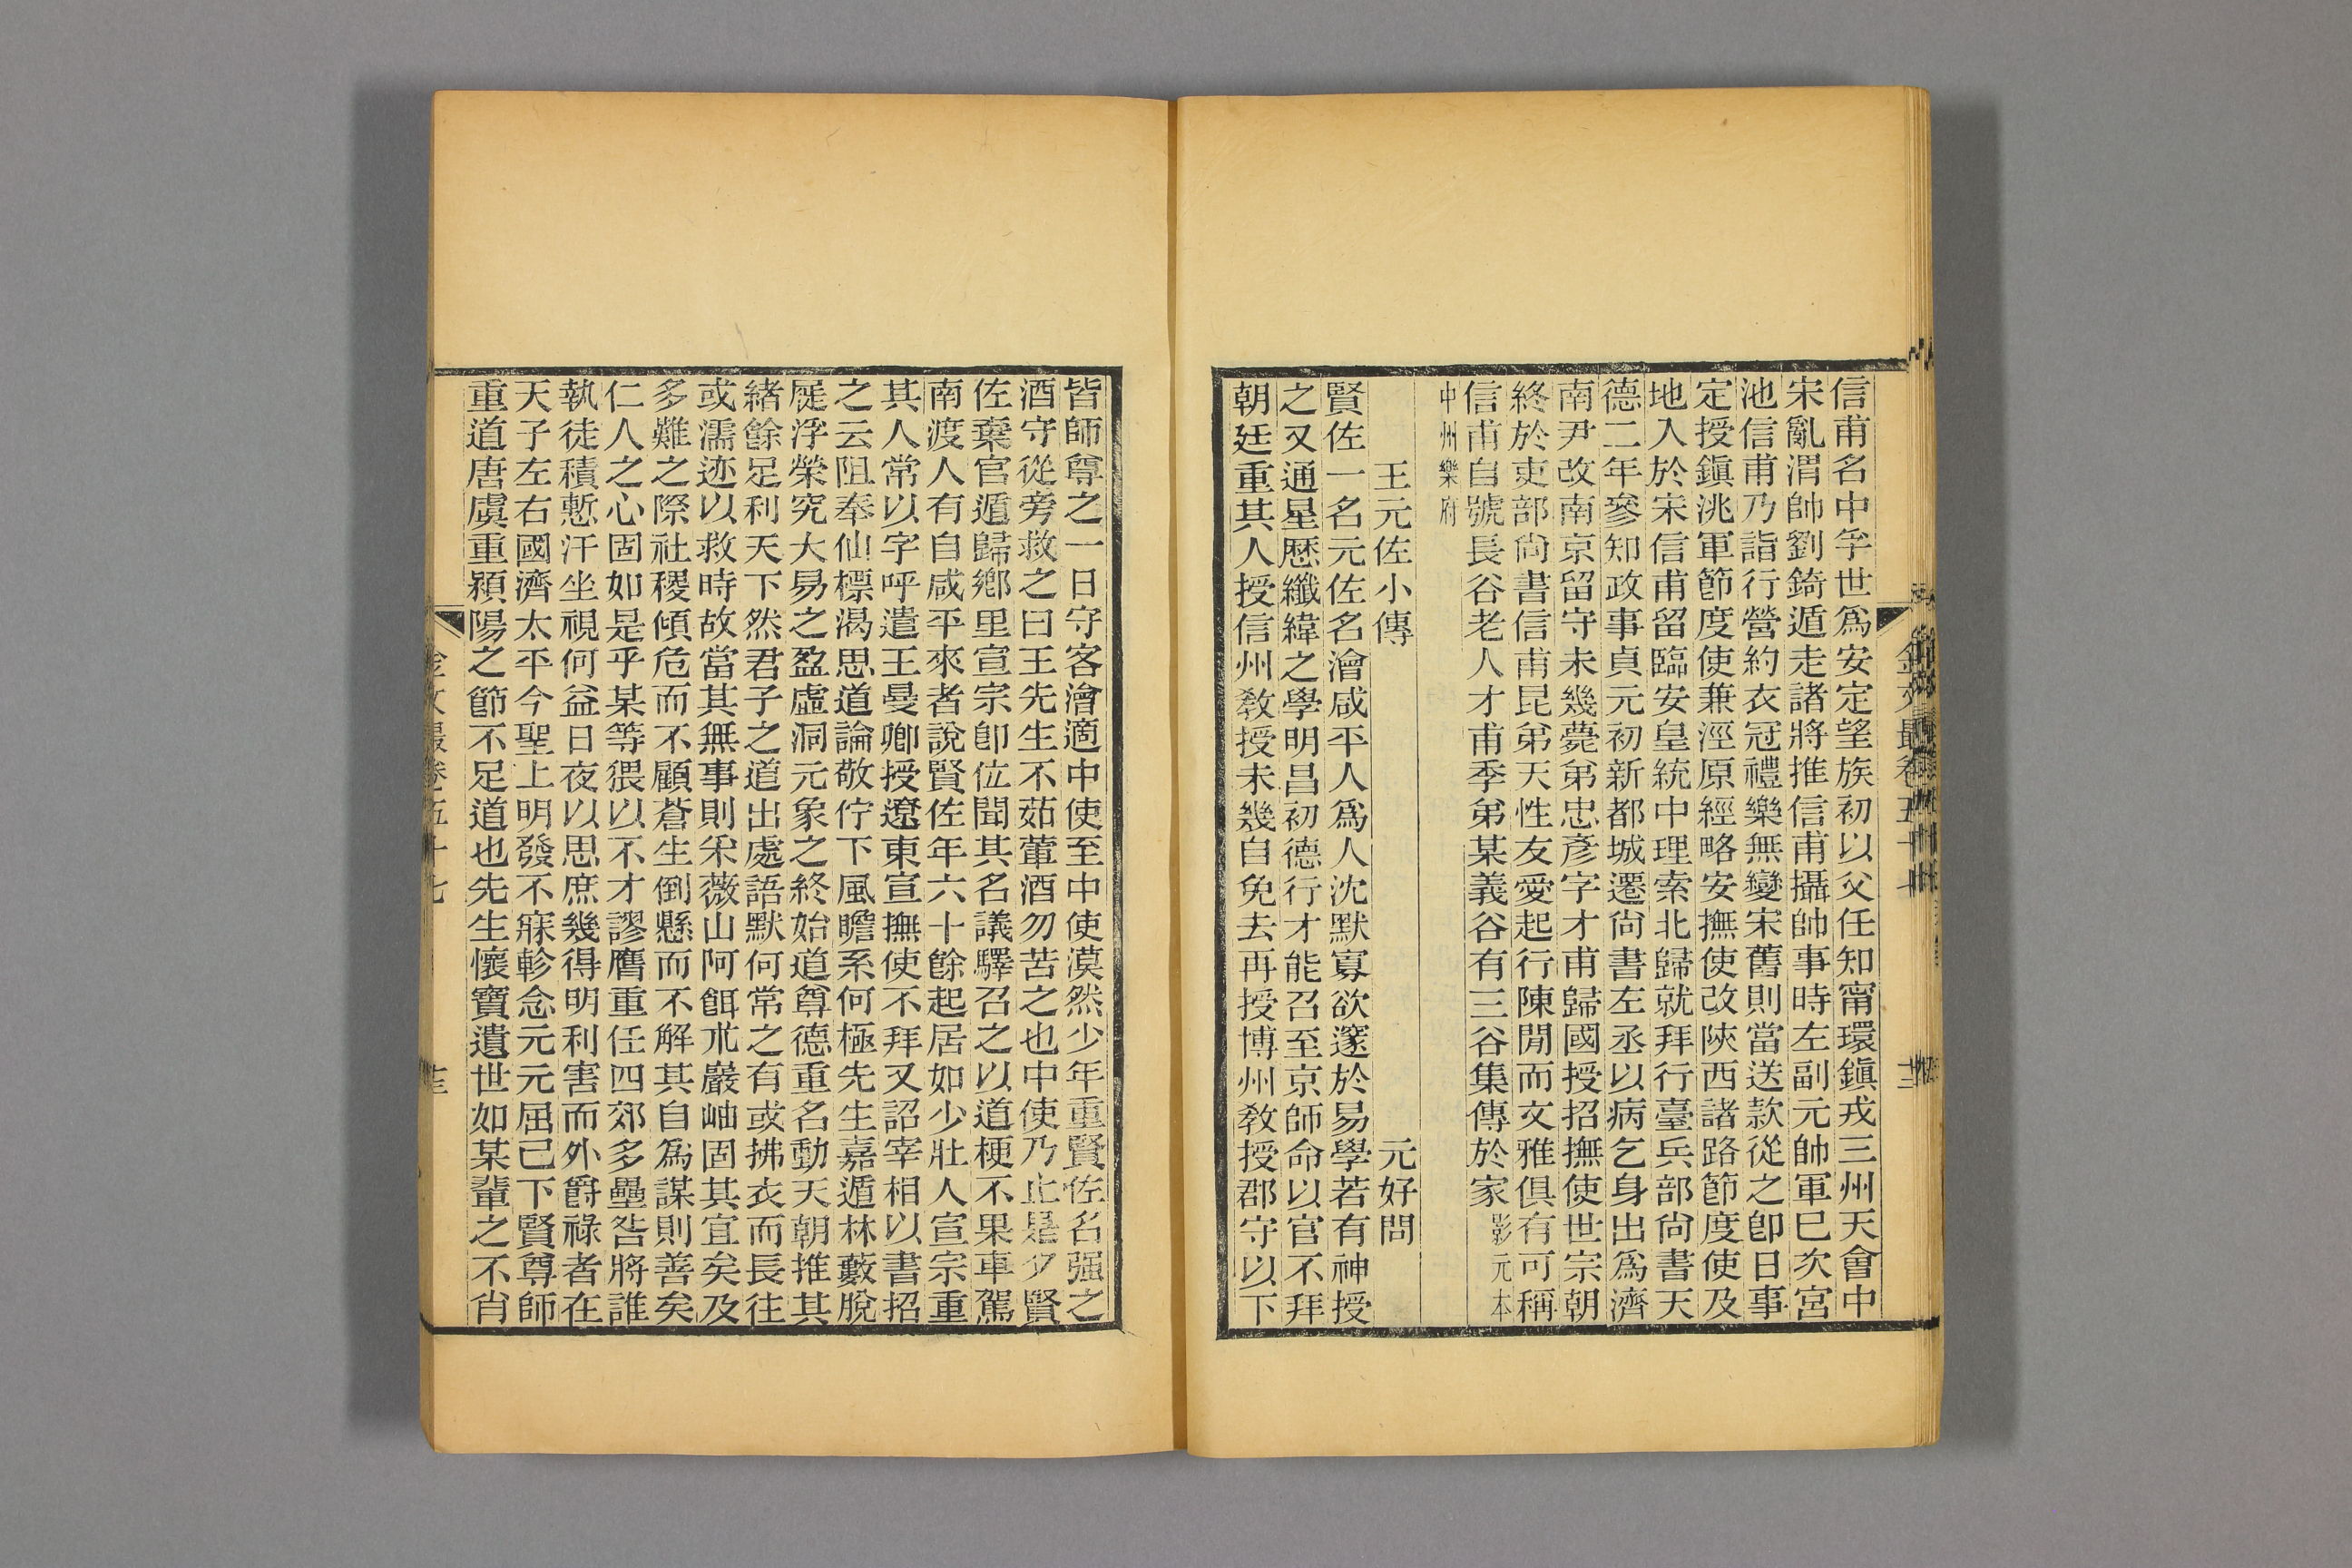 信甫名中孚世爲安定望族初以父任知甯環鎭戎三州天會中
宋亂渭帥劉錡遁走諸將推信甫攝帥事時左副元帥軍已次宮
池信甫乃詣行營約衣冠禮樂無變宋舊則當送款從之卽日事
定授鎭洮軍節度使兼涇原經略安撫使改陝西諸路節度使及
地入於宋信甫留臨安皇統中理索北歸就拜行臺兵部尙書天
德二年參知政事貞元初新都城遷尙書左丞以病乞身出爲濟
南尹改南京留守未幾薨弟忠彥字才甫歸國授招撫使世宗朝
終於吏部尙書信甫昆弟天性友愛起行陳閒而文雅俱有可稱
信甫自號長谷老人才甫季弟某義谷有三谷集傳於家影元本
中州樂府
王元佐小傳　元好問
賢佐一名元佐名澮咸平人爲人沈默寡欲邃於易學若有神授
之又通星歷纖緯之學明昌初德行才能召至京師命以官不拜
朝廷重其人授信州敎授未幾自免去再授博州敎授郡守以下
金文最卷五十七
十三
皆師尊之一日守客澮適中使至中使漠然少年重賢佐名强之
酒守從旁救之曰王先生不茹葷酒勿苦之也中使乃止是夕賢
佐棄官遁歸鄕里宣宗卽位聞其名議驛召之以道梗不果車駕
南渡人有自咸平來者說賢佐年六十餘起居如少壯人宣宗重
其人常以字呼遣王曼卿授遼東宣撫使不拜又詔宰相以書招
之云阻奉仙標渴思道論敬佇下風瞻系何極先生嘉遁林藪脫
屣浮榮究大易之盈虛洞元象之終始道尊德重名動天朝推其
緖餘足利天下然君子之道出處語默何常之有或拂衣而長往
或濡迹以救時故當其無事則采薇山阿餌朮巖岫固其宜矣及
多難之際社稷傾危而不顧蒼生倒懸而不解其自爲謀則善矣
仁人之心固如是乎某等猥以不才謬膺重任四郊多壘咎將誰
執徒積慙汗坐視何益日夜以思庶幾得明利害而外爵祿者在
天子左右國濟太平今聖上明發不寐軫念元元屈己下賢尊師
重道唐虞重潁陽之節不足道也先生懷寶遺世如某輩之不肖
金文最卷五十七